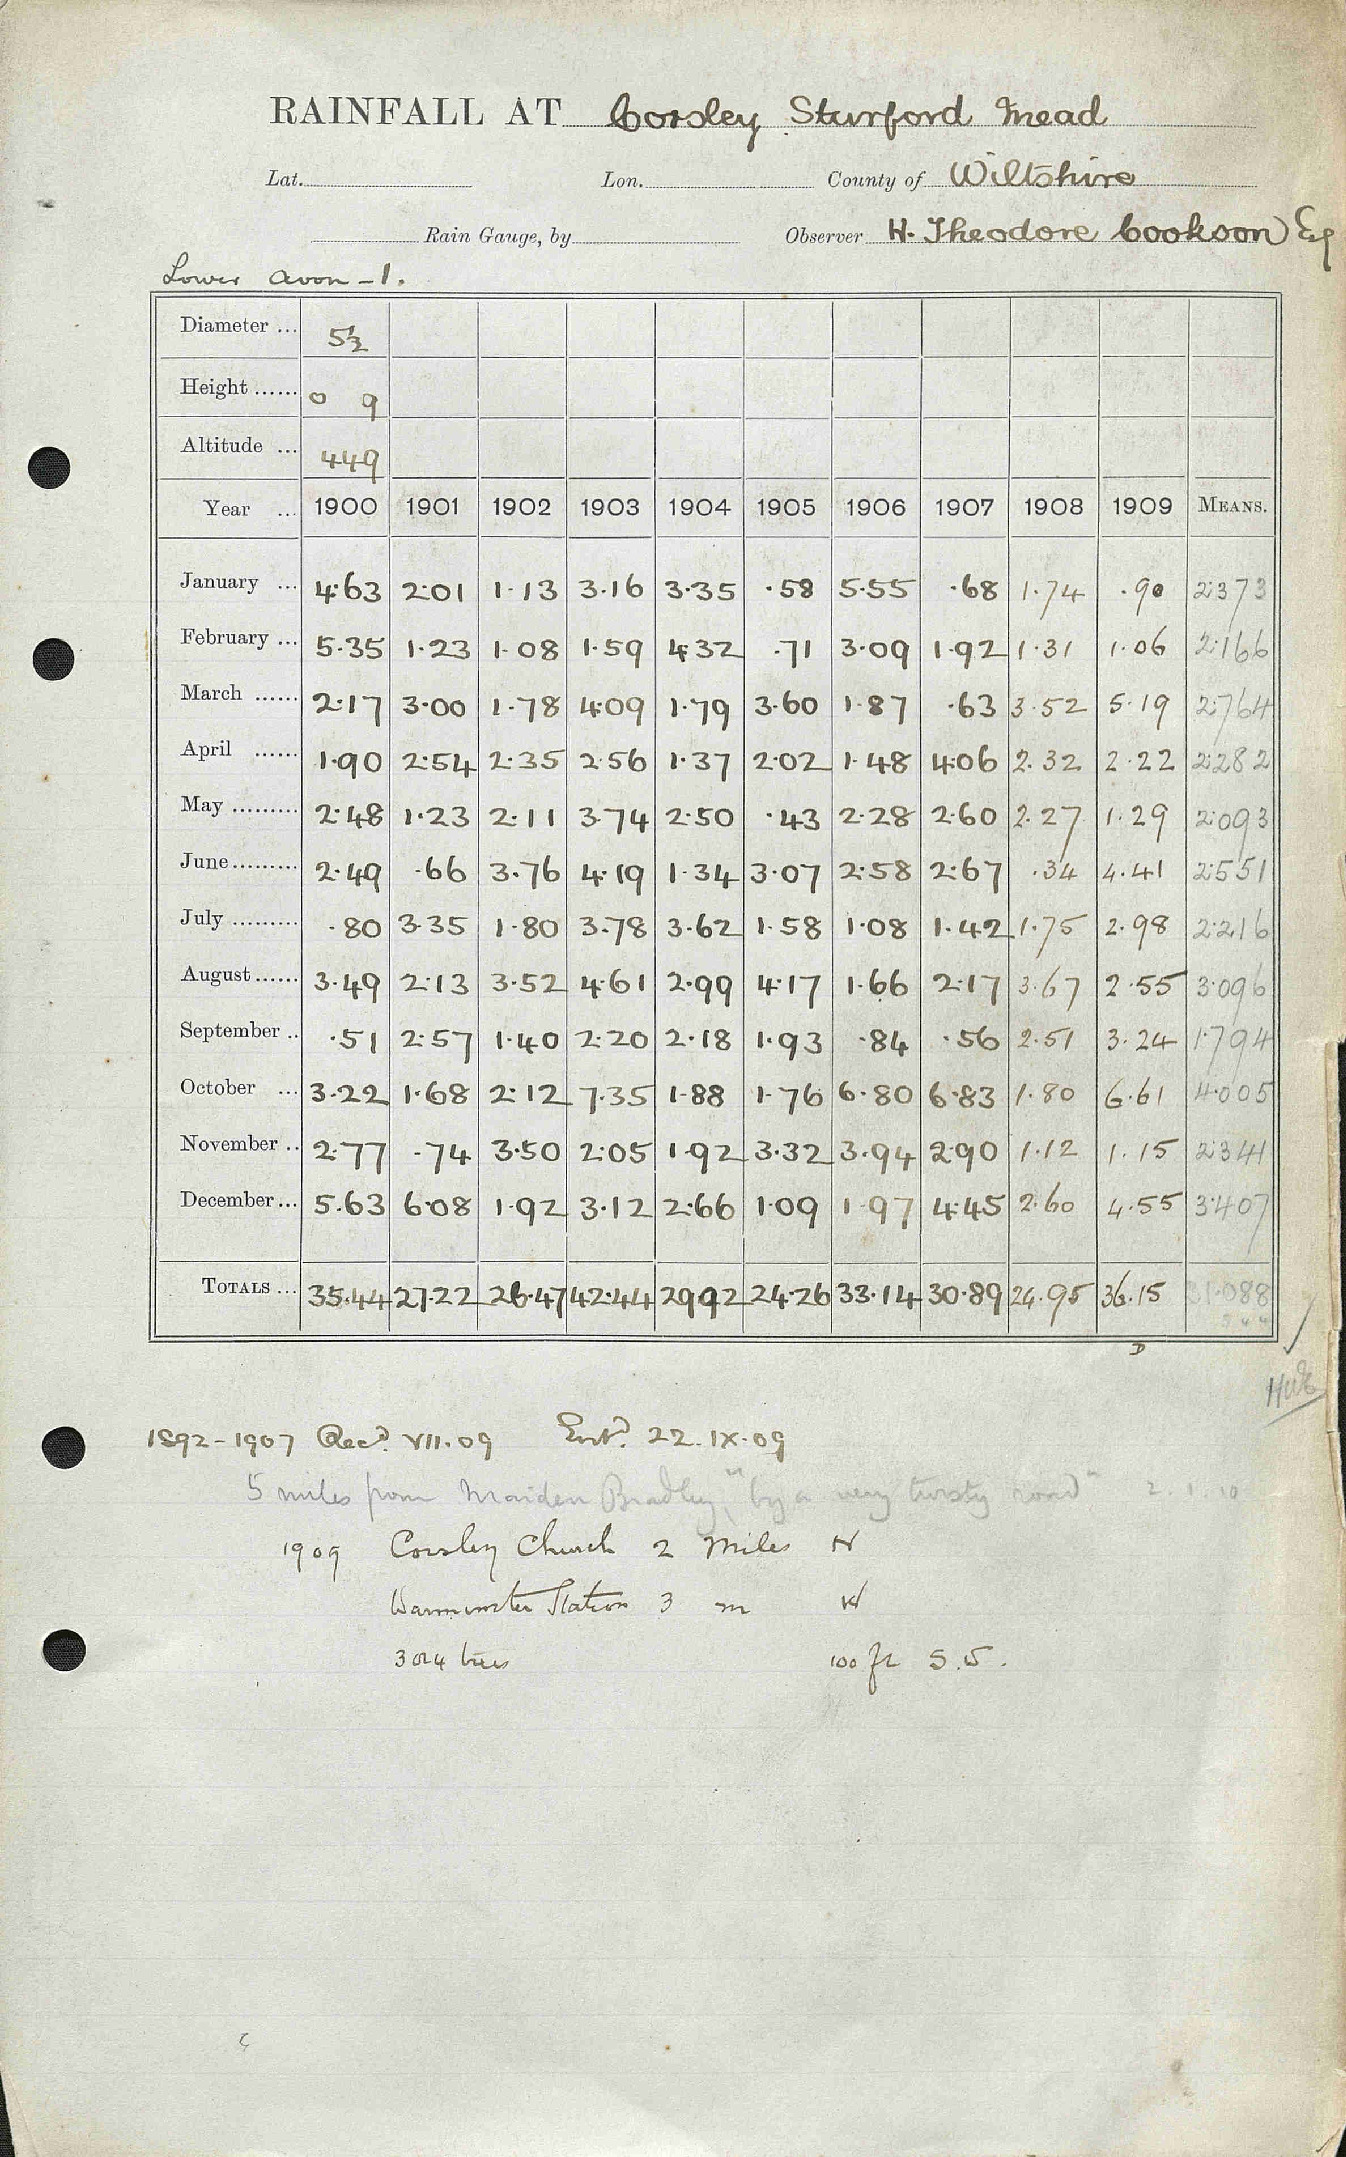 RAINFALL AT Corsley Sturford Mead
Lat. Lon. County of Wiltshire
Rain Gauge, by Observer H. Theodore Cookson Esq
Lower Avon - 1.
Diameter ... 5½
Height ...... 0 9
Altitude ... 449
Year ... 1900 1901 1902 1903 1904 1905 1906 1907 1908 1909 MEANS.
January ... 4.63 2.01 1.13 3.16 3.35 .58 5.55 .68 1.74 .90 2.373
February ... 5.35 1.23 1.08 1.59 4.32 .71 3.09 1.92 1.31 1.06 2.166
March ...... 2.17 3.00 1.78 4.09 1.79 3.60 1.87 .63 3.52 5.19 2.764
April ...... 1.90 2.54 2.35 2.56 1.37 2.02 1.48 4.06 2.32 2.22 2.282
May ......... 2.48 1.23 2.11 3.74 2.50 .43 2.28 2.60 2.27 1.29 2.093
June ......... 2.49 .66 3.76 4.19 1.34 3.07 2.58 2.67 .34 4.41 2.551
July ......... .80 3.35 1.80 3.78 3.62 1.58 1.08 1.42 1.75 2.98 2.216
August ...... 3.49 2.13 3.52 4.61 2.99 4.17 1.66 2.17 3.67 2.55 3.096
September .. .51 2.57 1.40 2.20 2.18 1.93 .84 .56 2.51 3.24 1.794
October ... 3.22 1.68 2.12 7.35 1.88 1.76 6.80 6.83 1.80 6.61 4.005
November .. 2.77 .74 3.50 2.05 1.92 3.32 3.94 2.90 1.12 1.15 2.341
December ... 5.63 6.08 1.92 3.12 2.66 1.09 1.97 4.45 2.60 4.55 3.407
TOTALS ... 35.44 27.22 26.47 42.44 29.92 24.26 33.14 30.89 24.95 36.15 31.088
D
1892-1907 Recd. VII.09 Entd. 22.IX.09
5 miles from Maiden Bradley, "by a very twisty road" 2.1.10
1909 Corsley Church 2 Miles N
Warminster Station 3 m
3 or 4 trees 100 ft S.W.